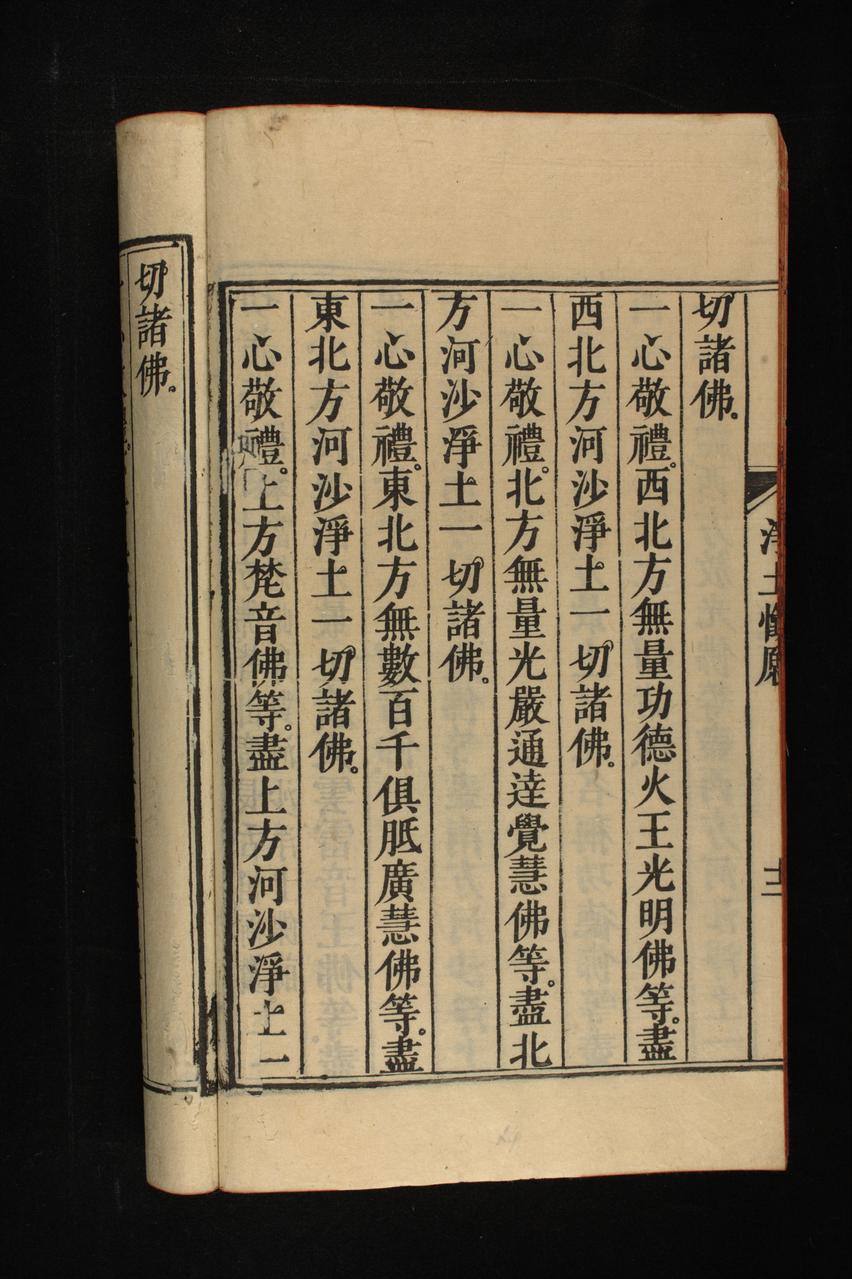 淨土懺
十二
切諸佛。
一心敬禮。西北方無量功德火王光明佛等。盡
西北方河沙淨土一切諸佛。
一心敬禮。北方無量光嚴通達覺慧佛等。盡北
方河沙淨土一切諸佛。
一心敬禮。東北方無數百千俱胝廣慧佛等。盡
東北方河沙淨土一切諸佛。
一心敬禮。上方梵音佛等。盡上方河沙淨土一
切諸佛。